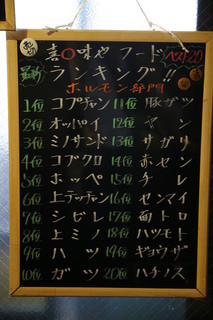 喜〇味や フード ベスト20
ランキング!!
ホルモン部門
1位 コプチャン 11位 豚ガツ
2位 オッパイ 12位 ヤン
3位 ミノサンド 13位 サガリ
4位 コブクロ 14位 赤セン
5位 ホッペ 15位 チレ
6位 上テッチャン 16位 センマイ
7位 シビレ 17位 面トロ
8位 上ミノ 18位 ハツモト
9位 ハツ 19位 ギョウザ
10位 ガツ 20位 ハチノス